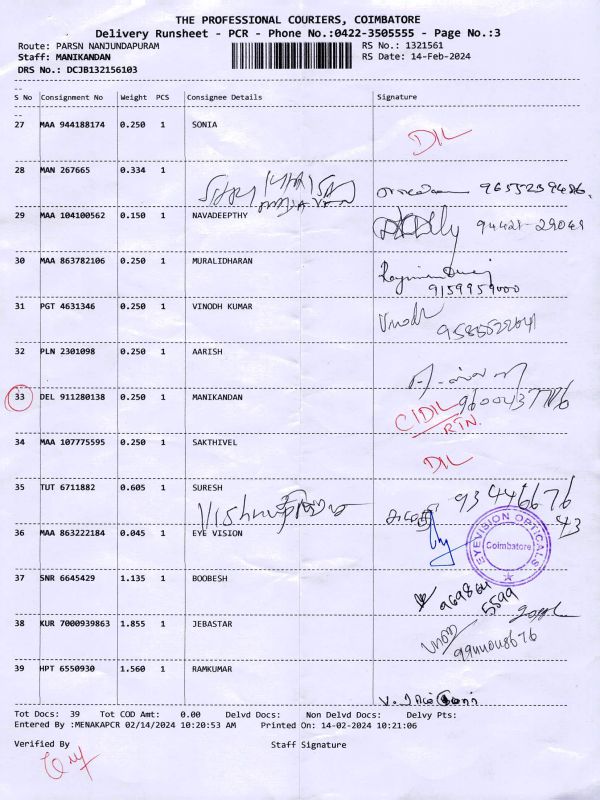 THE PROFESSIONAL COURIERS, COIMBATORE
Delivery Runsheet - PCR - Phone No.:0422-3505555 - Page No.:3
Route: PARSN NANJUNDAPURAM RS No.: 1321561
Staff: MANIKANDAN RS Date: 14-Feb-2024
DRS No.: DCJB132156103
S No Consignment No Weight PCS Consignee Details Signature
27 MAA 944188174 0.250 1 SONIA
DIL
28 MAN 267665 0.334 1
9655239486.
29 MAA 104100562 0.150 1 NAVADEEPTHY
94421-29049
30 MAA 863782106 0.250 1 MURALIDHARAN
9159959000
31 PGT 4631346 0.250 1 VINODH KUMAR
Vinodh
32 PLN 2301098 0.250 1 AARISH
33 DEL 911280138 0.250 1 MANIKANDAN
CIDIL
RTN.
34 MAA 107775595 0.250 1 SAKTHIVEL
DIL
35 TUT 6711882 0.605 1 SURESH
93446676
43
36 MAA 863222184 0.045 1 EYE VISION
EYEVISION OPTICALS
Coimbatore
37 SNR 6645429 1.135 1 BOOBESH
969864
5599
38 KUR 7000939863 1.855 1 JEBASTAR
39 HPT 6550930 1.560 1 RAMKUMAR
Tot Docs: 39 Tot COD Amt: 0.00 Delvd Docs: Non Delvd Docs: Delvy Pts:
Entered By :MENAKAPCR 02/14/2024 10:20:53 AM Printed On: 14-02-2024 10:21:06
Verified By Staff Signature